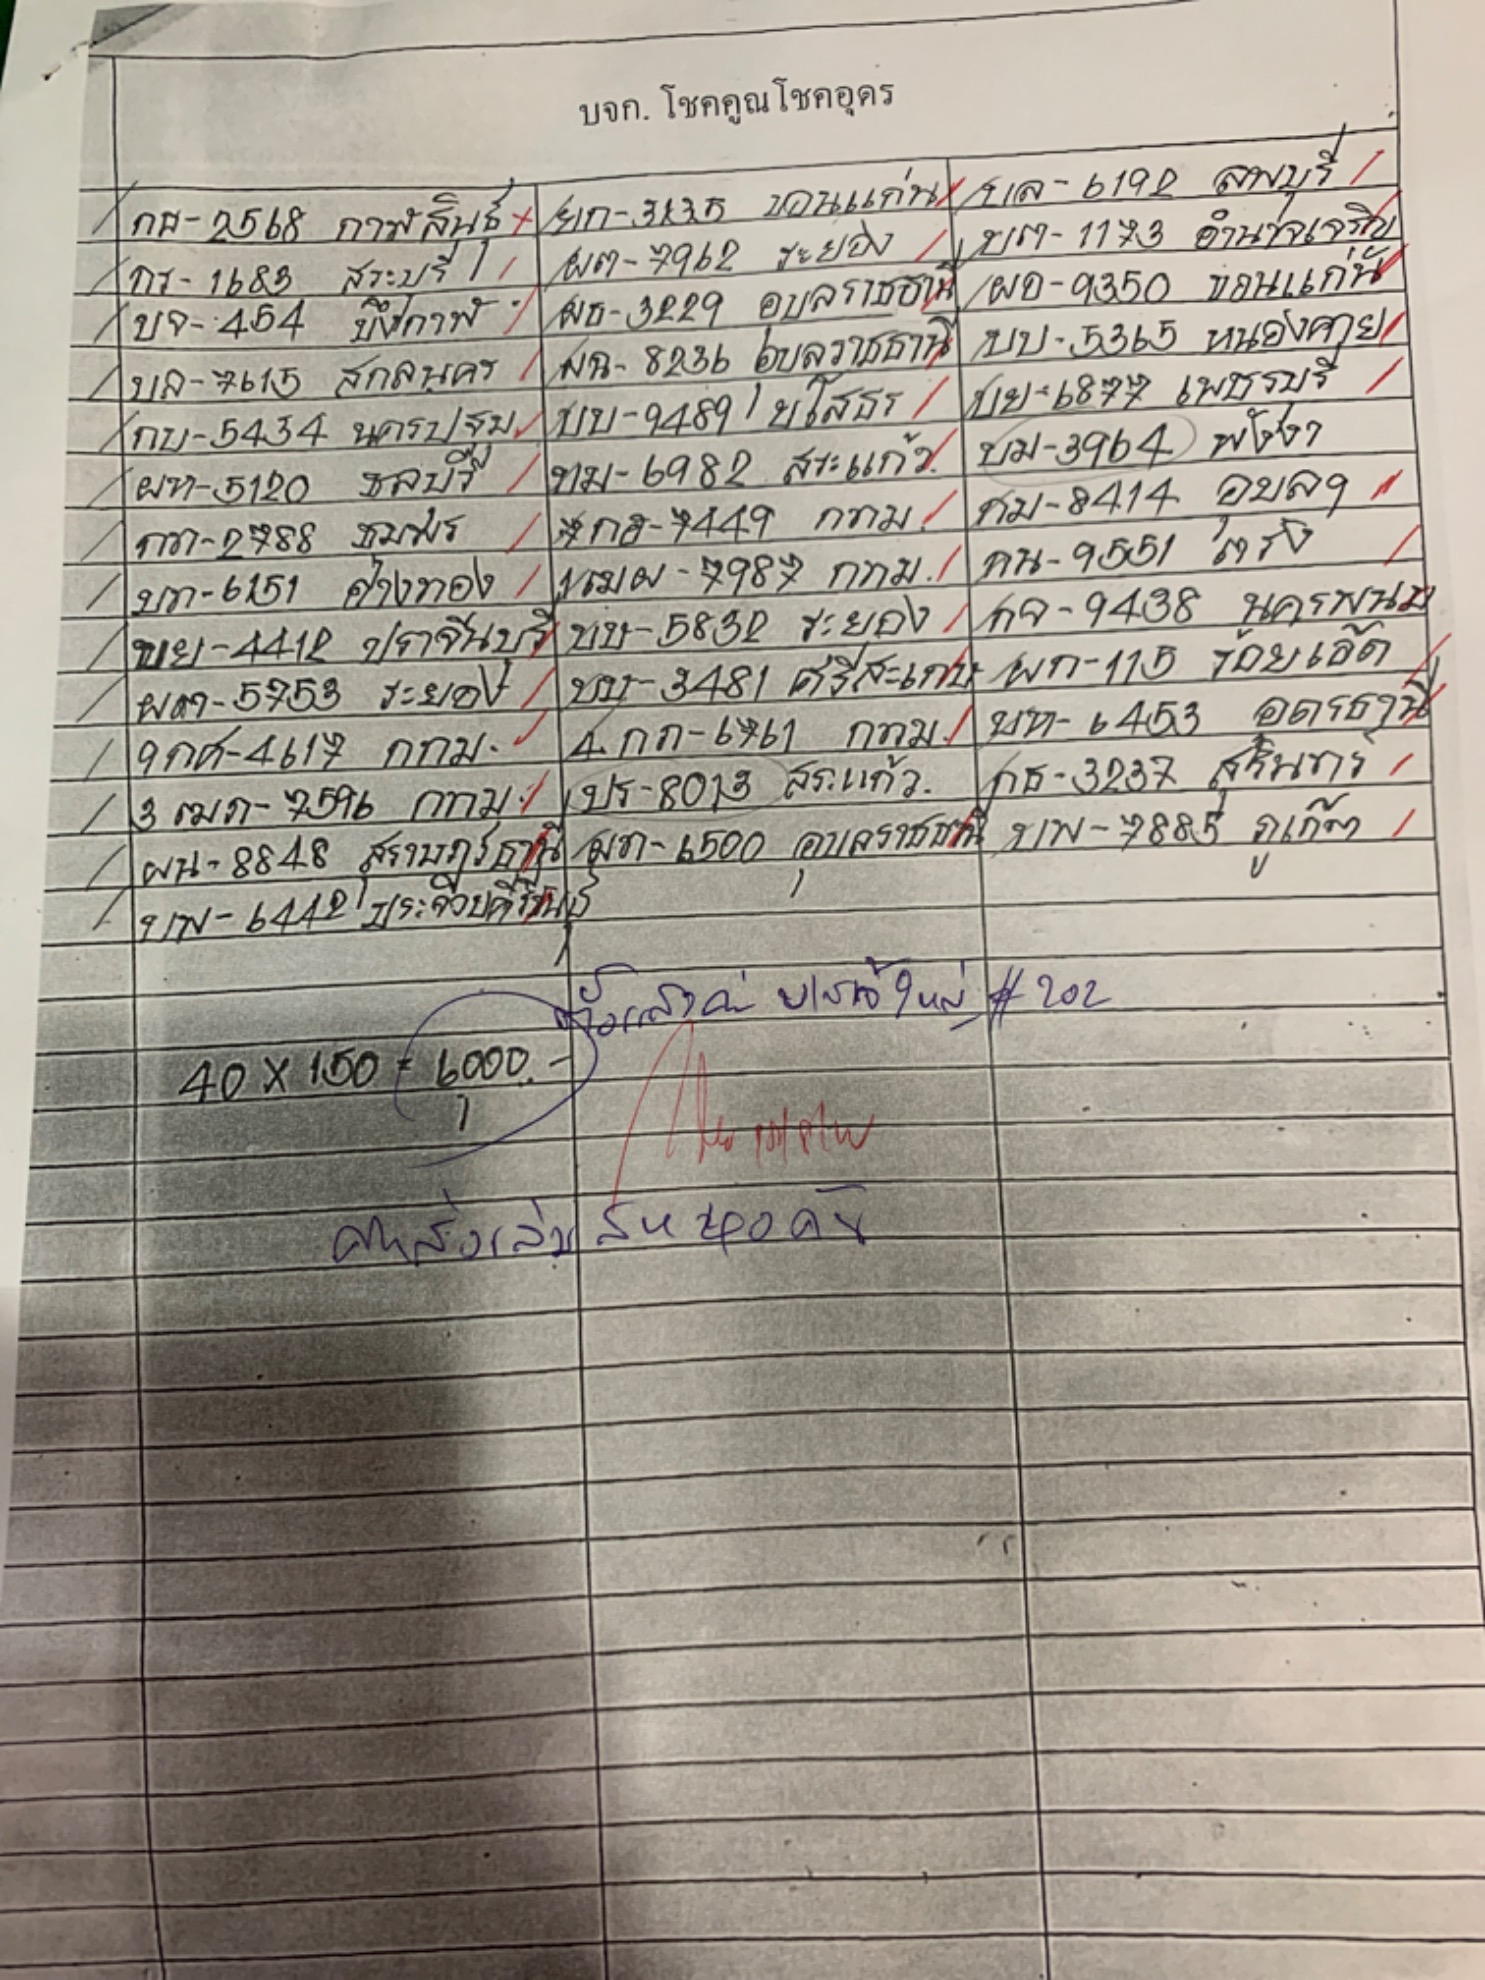 บจก. โชคคูณโชคอุดร
2568 กาฬสินธุ์
ยก-3235 ขอนแก่น
บล-6192 ลพบุรี
กร-1683 สระบุรี
ผต-7962 ระยอง
บต-1173 อำนาจเจริญ
บจ-454 บึงกาฬ
ผธ-3229 อุบลราชธานี
ผอ-9350 ขอนแก่น
บล-7615 สกลนคร
ผฉ-8236 อุบลราชธานี
บบ-5365 หนองคาย
กบ-5434 นครปฐม
บบ-9489 ยโสธร
บย-6877 เพชรบุรี
ผท-5120 ชลบุรี
บม-6982 สระแก้ว
บม-3964 พังงา
2788 ชุมพร
7449 กทม.
กม-8414 อุบลฯ
บท-6151 อ่างทอง
1ฒผ-7987 กทม.
กน-9551 ตรัง
ขย-4412 ปราจีนบุรี
บษ-5832 ระยอง
กจ-9438 นครพนม
ผต-5753 ระยอง
บบ-3481 ศรีสะเกษ
ผก-115 ร้อยเอ็ด
9กศ-4617 กทม.
4กภ-6761 กทม.
บท-6453 อุดรธานี
3ฒภ-7596 กทม.
บร-8013 สระแก้ว
กธ-3237 สุรินทร์
ผน-8848 สุราษฎร์ธานี
6500 อุบลราชธานี
บพ-7885 ภูเก็ต
บพ-6442 ประจวบคีรีขันธ์
#202
40 X 150 = 6000.-